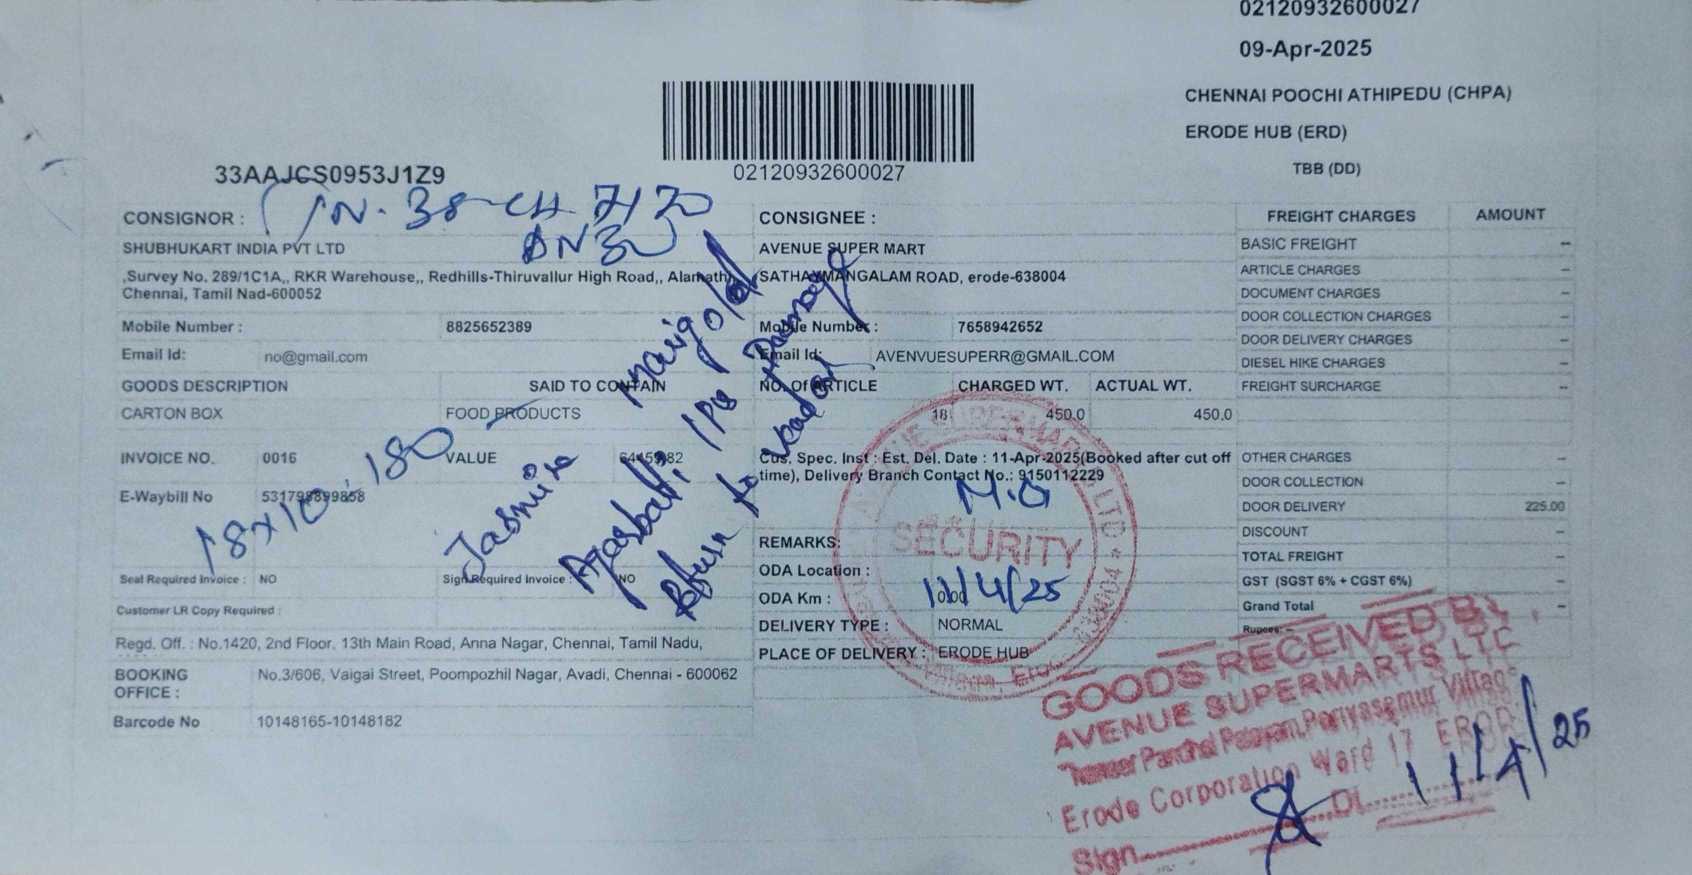 02120932600027
09-Apr-2025
CHENNAI POOCHI ATHIPEDU (CHPA)
ERODE HUB (ERD)
TBB (DD)
33AAJCS0953J1Z9
02120932600027
IN. 38-CH 7120
DN 30
CONSIGNOR :
SHUBHUKART INDIA PVT LTD
,Survey No. 289/1C1A,, RKR Warehouse,, Redhills-Thiruvallur High Road,, Alamathi,
Chennai, Tamil Nad-600052
Mobile Number : 8825652389
Email Id: no@gmail.com
GOODS DESCRIPTION SAID TO CONTAIN
CARTON BOX FOOD PRODUCTS
INVOICE NO. 0016 VALUE
E-Waybill No 531798899858
Seal Required Invoice : NO Sign Required Invoice : NO
Customer LR Copy Required :
Regd. Off. : No.1420, 2nd Floor. 13th Main Road, Anna Nagar, Chennai, Tamil Nadu,
BOOKING OFFICE : No.3/606, Vaigai Street, Poompozhil Nagar, Avadi, Chennai - 600062
Barcode No 10148165-10148182
18x10-180
Jasmine Marigold
Agarbatti, 1Pc Damage
Return to Vendor
CONSIGNEE :
AVENUE SUPER MART
SATHAYMANGALAM ROAD, erode-638004
Mobile Number : 7658942652
Email Id: AVENVUESUPERR@GMAIL.COM
NO. Of ARTICLE CHARGED WT. ACTUAL WT.
18 450.0 450.0
Cus. Spec. Inst : Est. Del. Date : 11-Apr-2025(Booked after cut off
time), Delivery Branch Contact No.: 9150112229
REMARKS:
ODA Location :
ODA Km : 0.00
DELIVERY TYPE : NORMAL
PLACE OF DELIVERY : ERODE HUB
M.G
SECURITY
11/4/25
FREIGHT CHARGES AMOUNT
BASIC FREIGHT –
ARTICLE CHARGES –
DOCUMENT CHARGES –
DOOR COLLECTION CHARGES –
DOOR DELIVERY CHARGES –
DIESEL HIKE CHARGES –
FREIGHT SURCHARGE –
OTHER CHARGES –
DOOR COLLECTION –
DOOR DELIVERY 225.00
DISCOUNT –
TOTAL FREIGHT –
GST (SGST 6% + CGST 6%) –
Grand Total –
Rupees: –
GOODS RECEIVED BY
AVENUE SUPERMARTS LTD
Village
Erode Corporation Ward 17 ERODE
Sign............Dt.
11/4/25